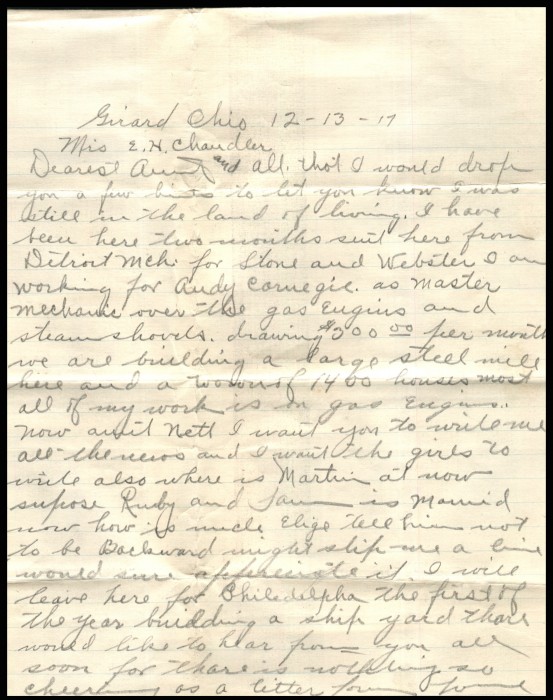 Girard Ohio 12-13-17
Mis E. H. Chandler
Dearest Aunt and all. that I would drop
you a few lines to let you know I was
still in the land of living. I have
been here two months sent here from
Ditroit Mch. for Stone and Webster I am
working for Andy Carnegie. as Master
Mechanic over the gas Engins and
steam shovels. drawing $200 00 per month
we are building a large steel mill
here and a town of 1400 houses most
all of my work is on gas Engins.
now autit Nett I want you to write me
all the news and I want the girls to
write also where is Martin at now
supose Ruby and is Marrid
now how is uncle Elige tell him not
to be Backward might slip me a line
would sure appreciate it. I will
leave here for Philadelpha the first of
the year building a ship yard thare
would like to hear from you all
soon for thare is nothing so
cheering as a letter from